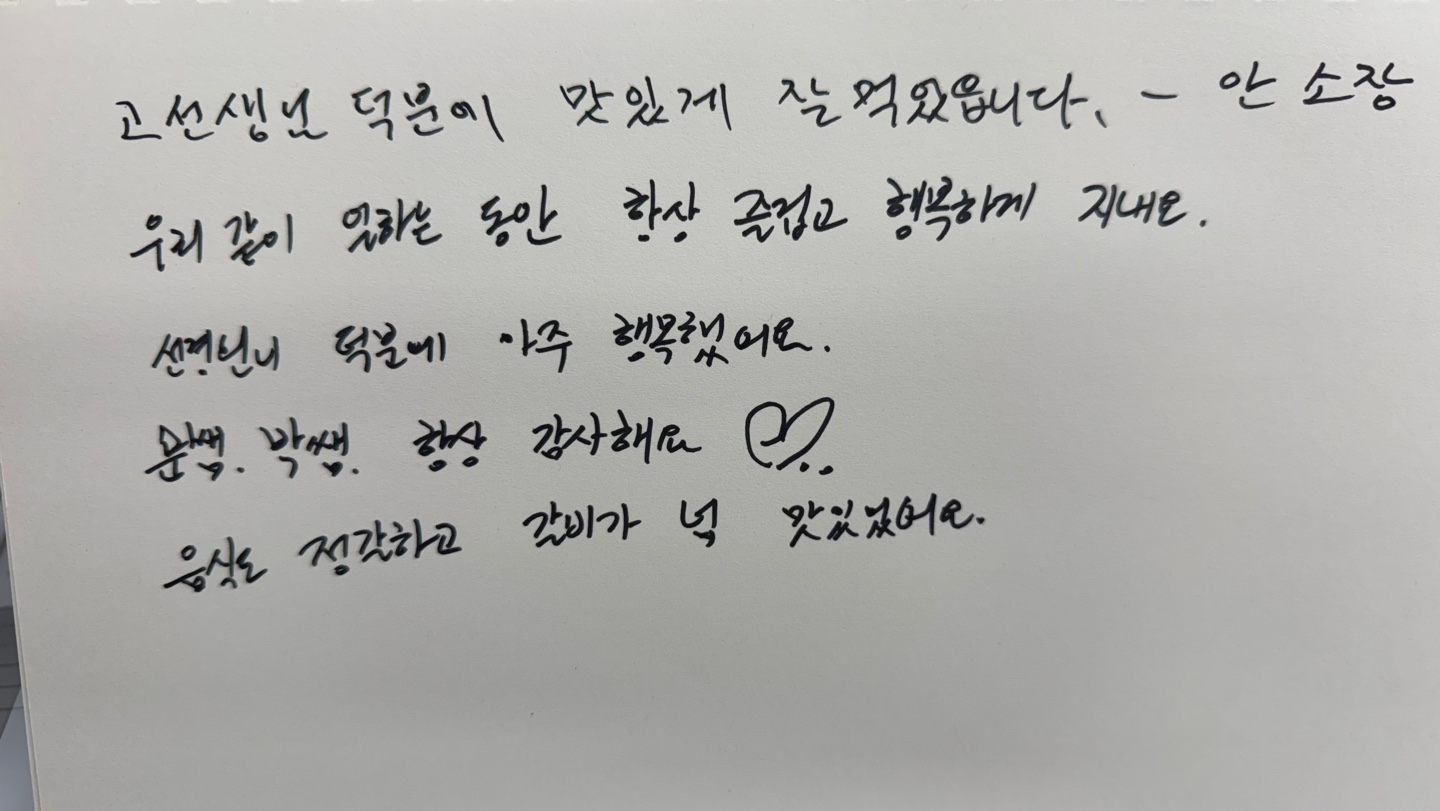 고선생님 덕분에 맛있게 잘 먹었읍니다. - 안 소장
우리 같이 일하는 동안 항상 즐겁고 행복하게 지내요.
덕분에 아주 행복했어요.
문쌤. 박쌤. 항상 감사해요
음식도 정갈하고 갈비가 넘 맛있었어요.